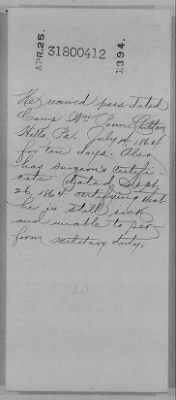 APR. 25.
31800412
1394.
He received pass dated
Camp Wm Penn Chilton
Hills Pa. July 14, 1864
for ten days. Also
has Surgeon's Certifi-
cate dated Sept.
26, 1864 certifying that
he is still sick
and unable to per-
form military duty.